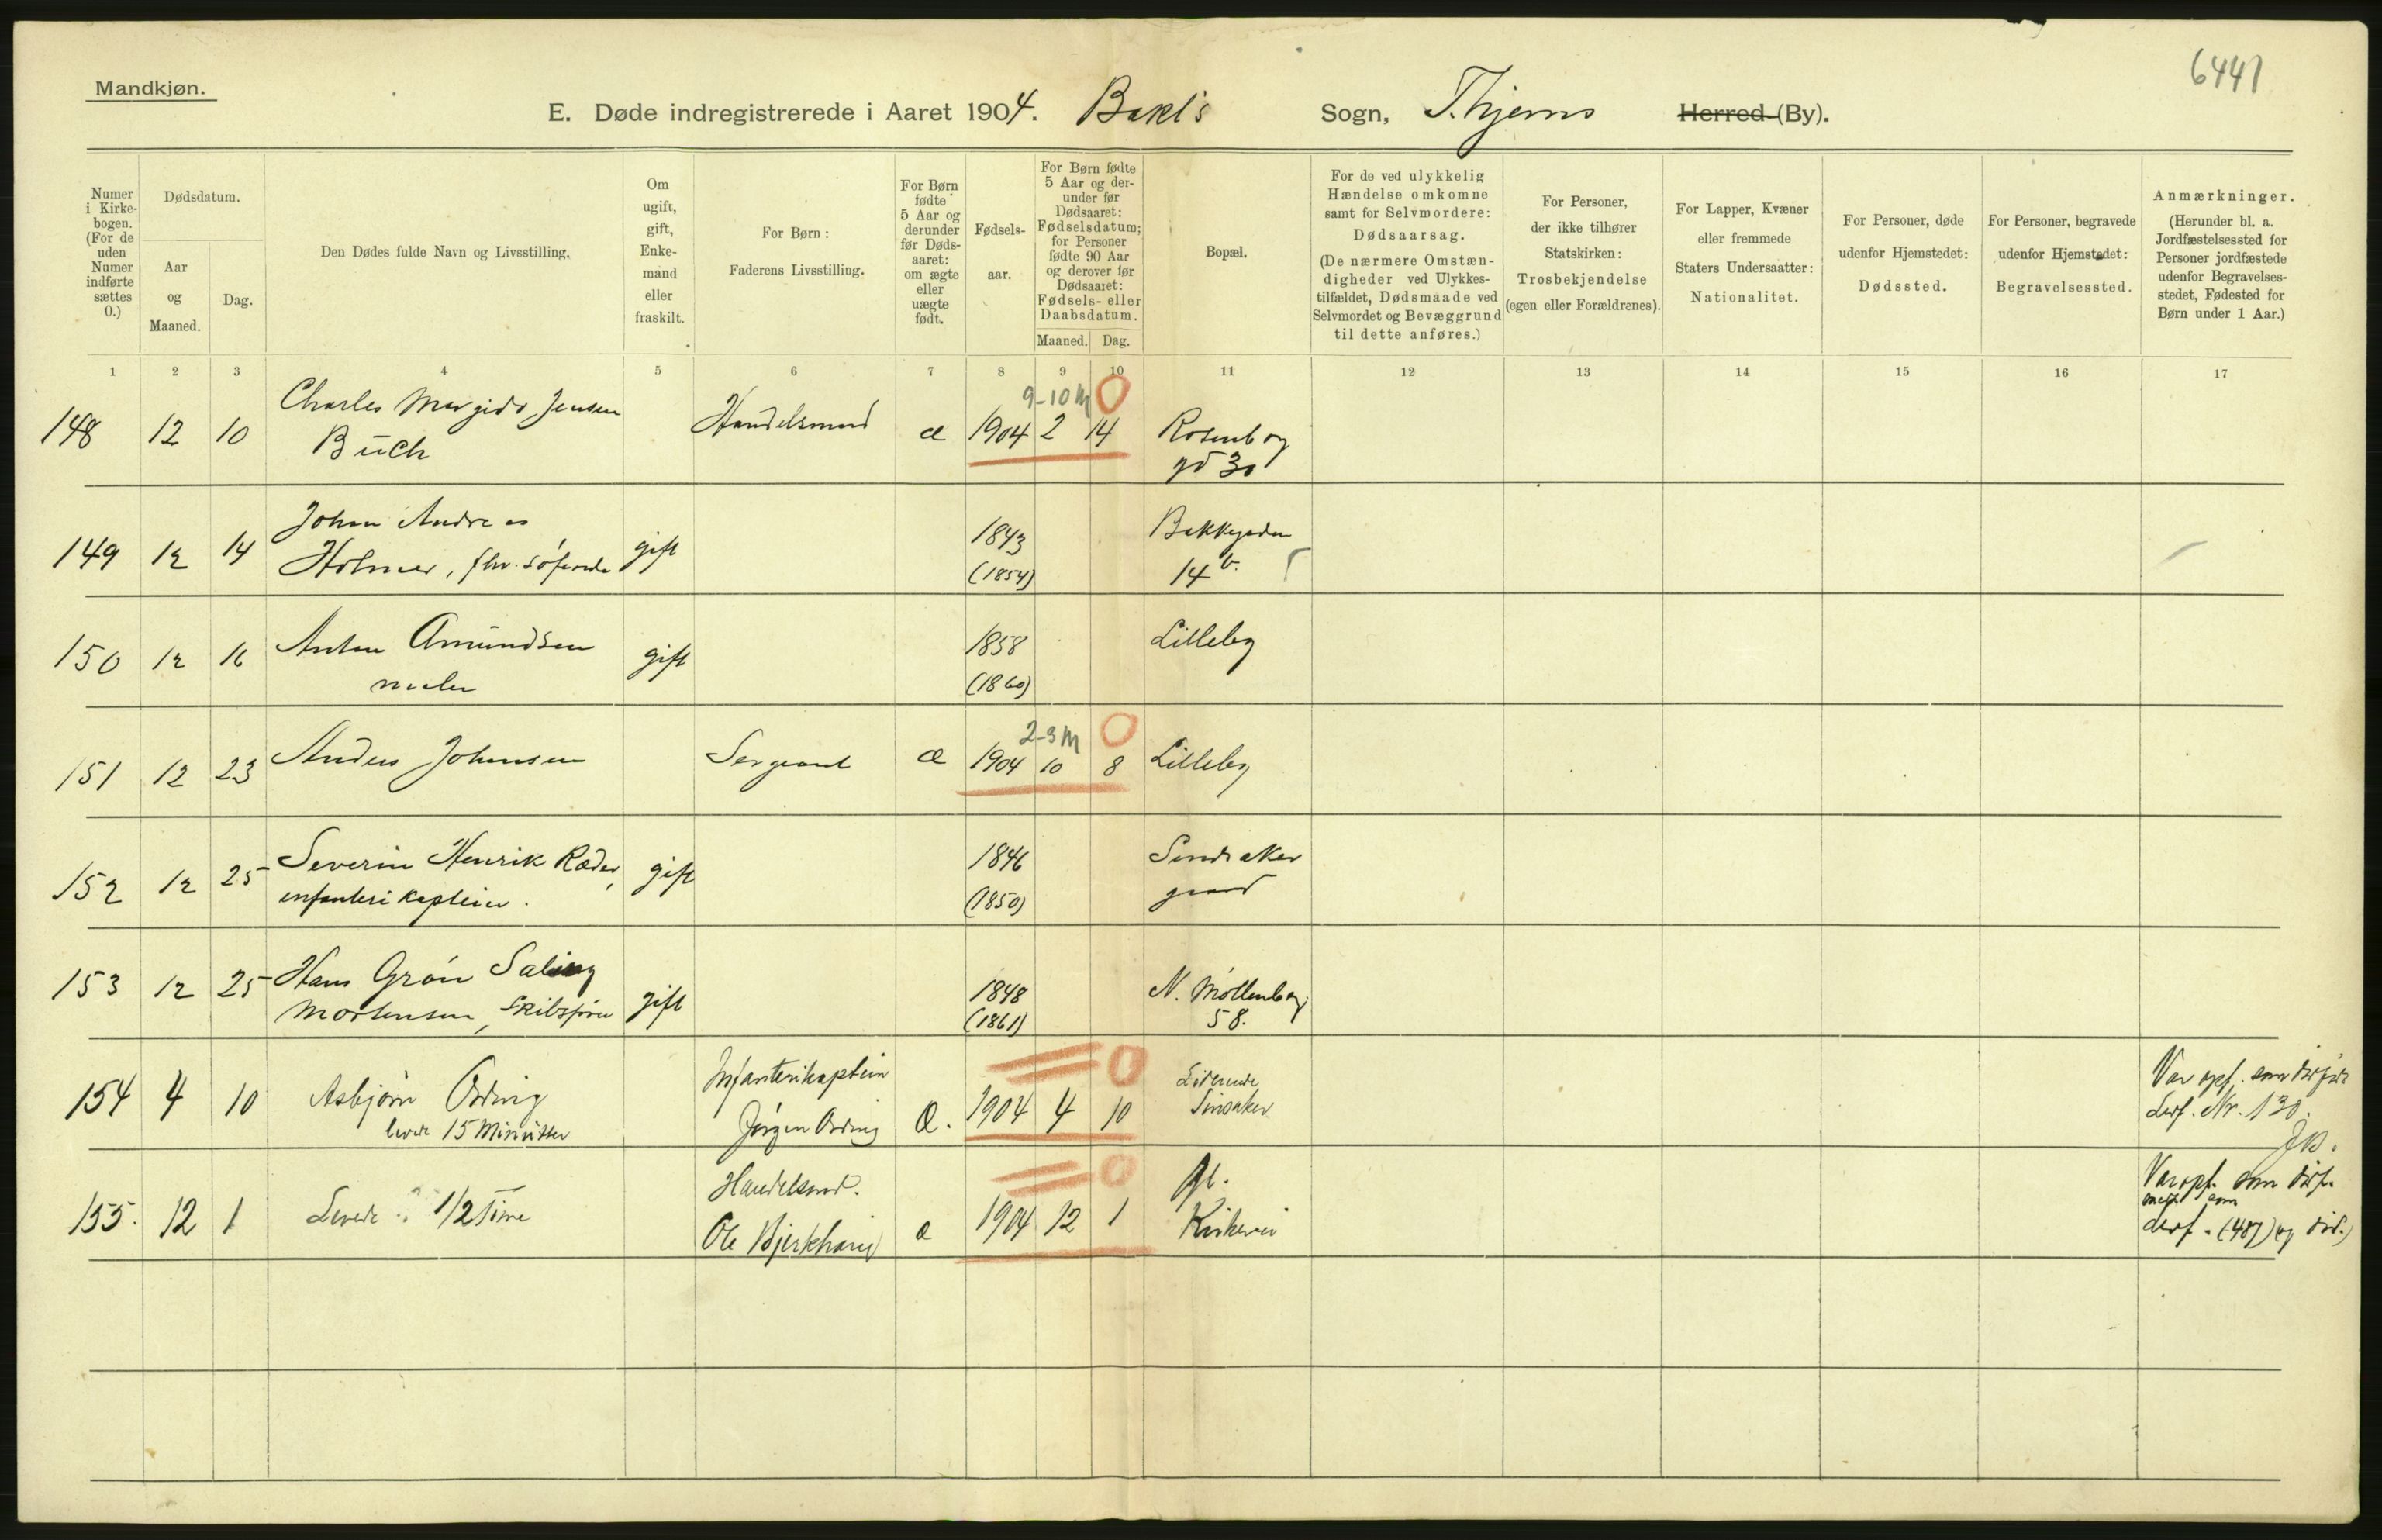 Mandkjøn.
6441
E. Døde indregistrerede i Aaret 1904. Bakl's Sogn, T.hjems Herred (By).
Numer i Kirkebogen. (For de uden Numer indførte sættes 0.)
Dødsdatum.
Aar og Maaned.
Dag.
Den Dødes fulde Navn og Livsstilling.
Om ugift, gift, Enkemand eller fraskilt.
For Børn: Faderens Livsstilling.
For Børn fødte 5 Aar og derunder før Dødsaaret: om ægte eller uægte født.
Fødselsaar.
For Børn fødte 5 Aar og derunder før Dødsaaret: Fødselsdatum; for Personer fødte 90 Aar og derover før Dødsaaret: Fødsels- eller Daabsdatum.
Maaned. Dag.
Bopæl.
For de ved ulykkelig Hændelse omkomne samt for Selvmordere: Dødsaarsag. (De nærmere Omstændigheder ved Ulykkestilfældet, Dødsmaade ved Selvmordet og Bevæggrund til dette anføres.)
For Personer, der ikke tilhører Statskirken: Trosbekjendelse (egen eller Forældrenes).
For Lapper, Kvæner eller fremmede Staters Undersaatter: Nationalitet.
For Personer, døde udenfor Hjemstedet: Dødssted.
For Personer, begravede udenfor Hjemstedet: Begravelsessted.
Anmærkninger. (Herunder bl. a. Jordfæstelsessted for Personer jordfæstede udenfor Begravelsesstedet, Fødested for Børn under 1 Aar.)
1 2 3 4 5 6 7 8 9 10 11 12 13 14 15 16 17
9-10 M 0
148 12 10 Charles Jensen Buch Handelsmand æ 1904 2 14 Rosenborg gd 30
149 12 14 Johan Andreas Holmer, fhv. søfarende gift 1843 (1854) Bakkegaden 14 b.
150 12 16 Anton Amundsen maler gift 1858 (1860) Lilleby
2-3 M 0
151 12 23 Anders Johansen Sergeant æ 1904 10 8 Lilleby
152 12 25 Severin Henrik Ræder, infanterikaptein. gift 1846 (1850) gaard
153 12 25 Hans Grøn Saling Mortensen, Skibsfører gift 1848 (1861) N. Møllenberg 58.
0
154 4 10 Asbjørn Ording levede 15 Minutter Infanterikaptein Jørgen Ording Æ. 1904 4 10 Sinsaker Var opf. som dødfødt Nr. 130.
0
155. 12 1 Levede 1/2 Time Handelsmd. Ole æ 1904 12 1 Gl. Kirkevei Var opf. som